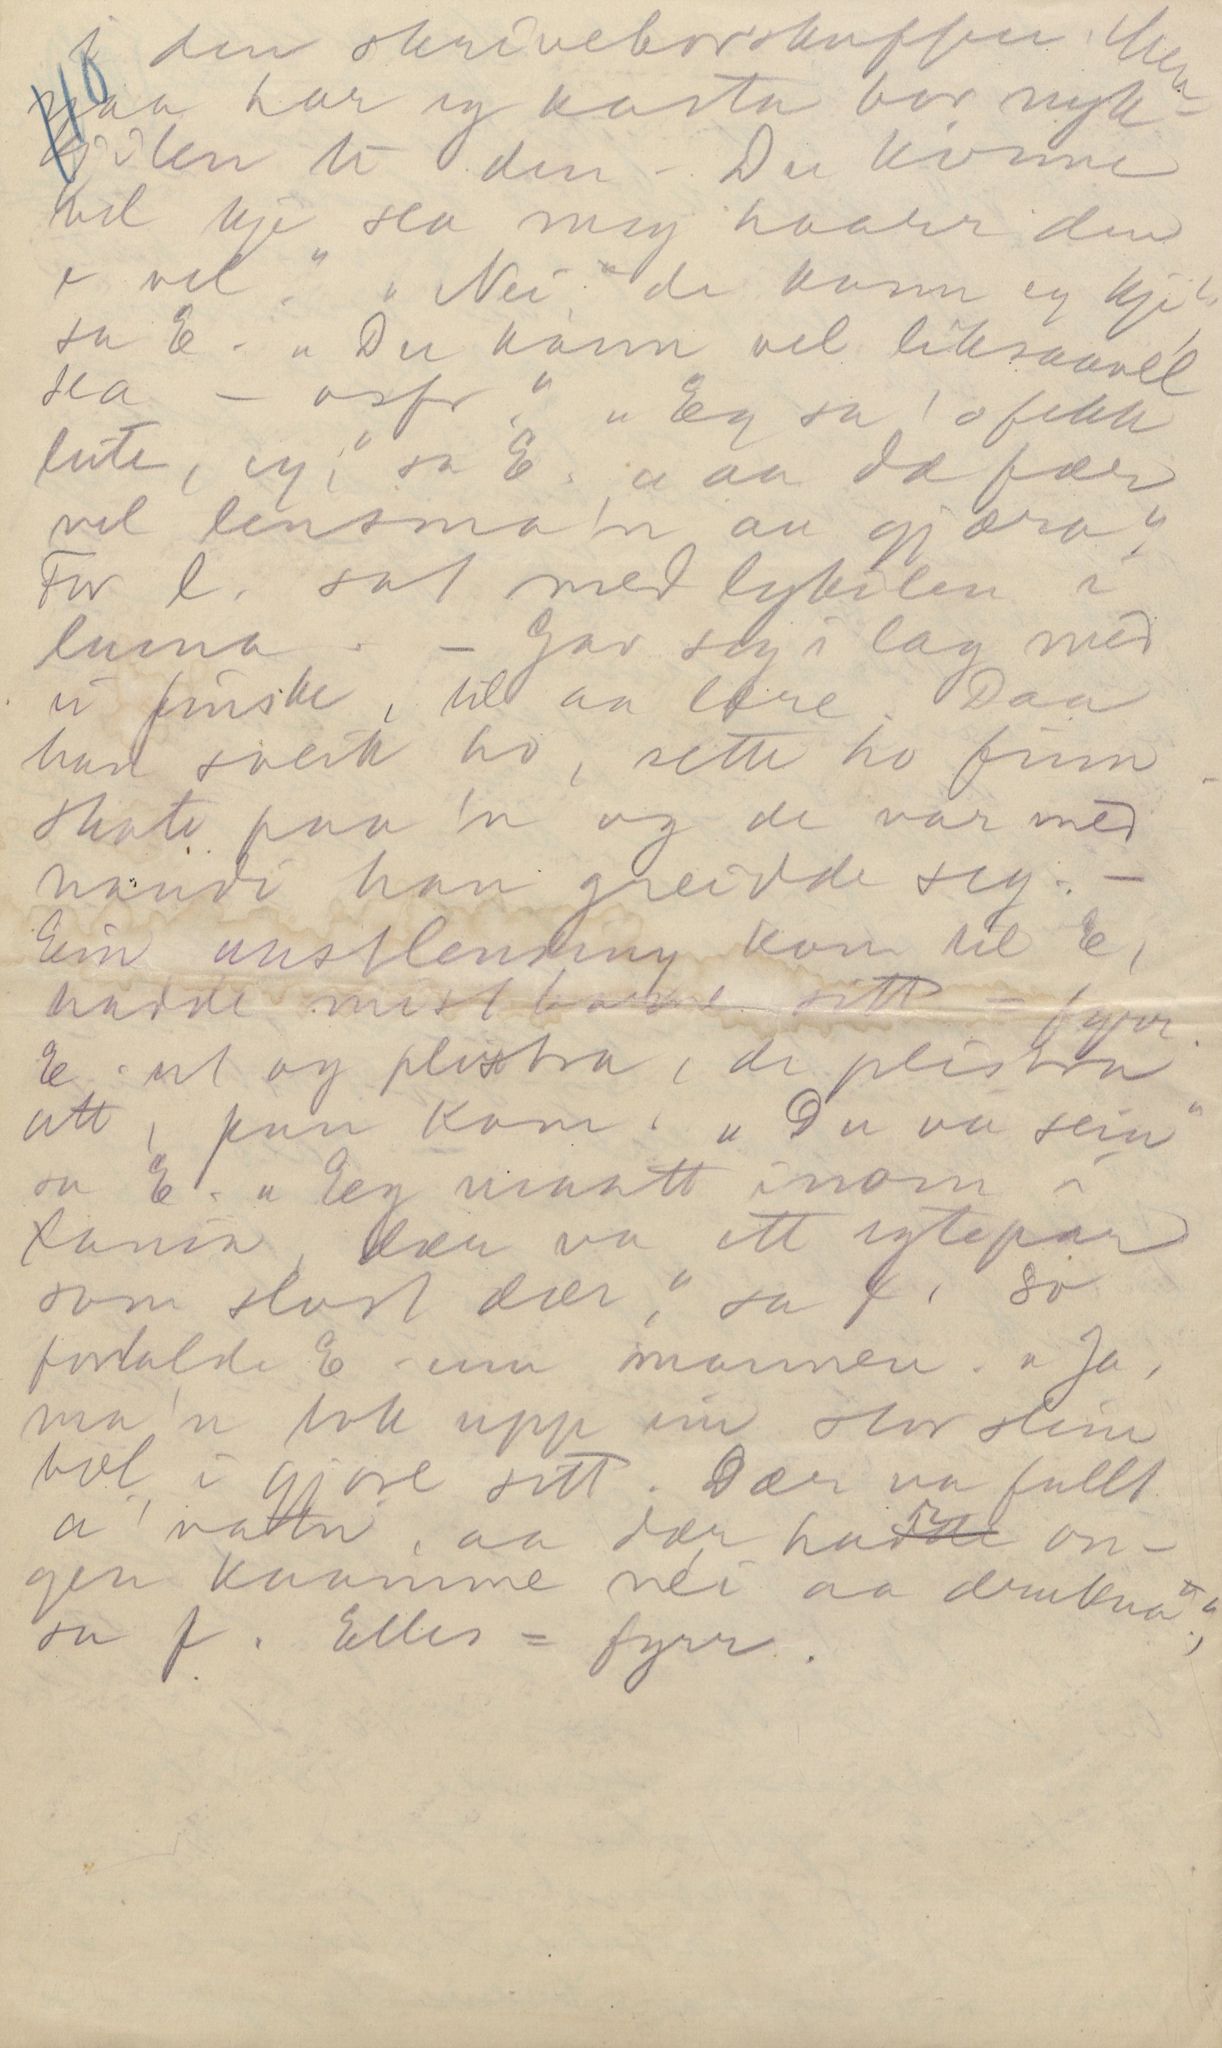 i den skriveborskuffen. Men
saa har eg kasta bor nyk-
kjilen ti den - Du könne
vel kje sea meg haarr den
e vel." "Nei" de kann eg kje",
sa E. "Du kann vel liksaavel
sea - osfr." "Eg sa 'o fekk
lute, eg," sa E. "aa dæ fær
vel lensma'n aa gjæra".
For l. sat med lykilen i
luma. - Gav seg i lag med
ei finske, til aa lære. Daa
han sveik ho, sette ho finn-
skote paa 'n og de var med
naudi han greidde seg. -
Ein austlending kom til E,
hadde mist barnet sitt - fyrr.
E. ut og plistra, de plistra
att, fan kom. "Du va sein"
sa E. "Eg maatt inom i
Xania, dær va ett egtepar
som slost dær," sa f. So
fortalde E. um mannen. "Ja,
ma'n tok upp ein stor stein
i gjøre sitt. Dær va fullt
a' vattn, aa dær hadde on-
gen kaamme nei aa drukna",
sa f. Elles = fyrr.
118